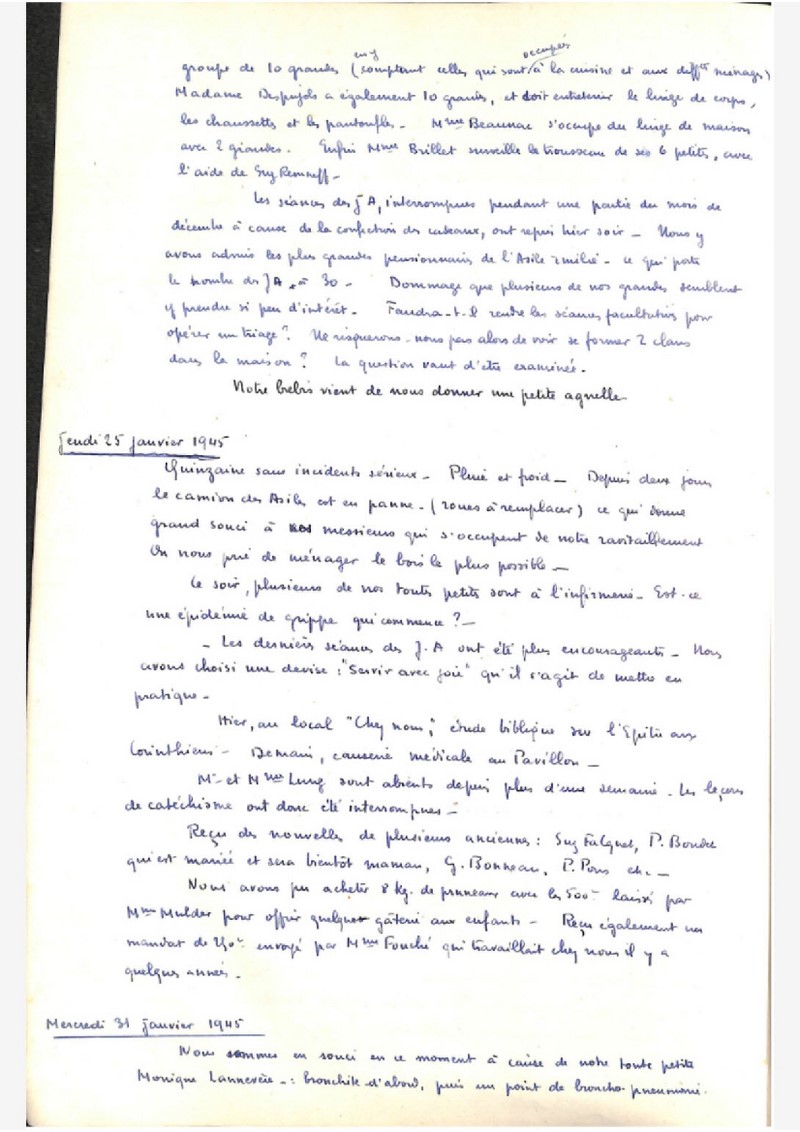 groupe de 10 grandes (en y comptant celles qui sont occupées à la cuisine et aux diff^ts ménages)
Madame Despujols a également 10 grandes, et doit entretenir le linge de corps,
les chaussettes et les pantoufles - Mme Beaunac s'occupe du linge de maison
avec 2 grandes. Enfin Mme Brillet surveille le trousseau de ses 6 petits, avec
l'aide de Suz
Les séances des J A, interrompues pendant une partie du mois de
décembre à cause de la confection des cadeaux, ont repris hier soir - Nous y
avons admis les plus grandes pensionnaires de l'Asile Emilie - ce qui porte
le nombre des J A à 30 - Dommage que plusieurs de nos grandes semblent
y prendre si peu d'intérêt - Faudra-t-il rendre les séances facultatives pour
opérer un triage ? Ne risquerons-nous pas alors de voir se former 2 clans
dans la maison ? La question vaut d'être examinée.
Notre brebis vient de nous donner une petite agnelle
Jeudi 25 janvier 1945
Quinzaine sans incidents sérieux - Pluie et froid - Depuis deux jours
le camion des Asiles est en panne - (roues à remplacer) ce qui donne
grand souci à nos messieurs qui s'occupent de notre ravitaillement
On nous prie de ménager le bois le plus possible -
Ce soir, plusieurs de nos toutes petites sont à l'infirmerie - Est-ce
une épidémie de grippe qui commence ? -
- Les dernières séances des J. A ont été plus encourageantes - Nous
avons choisi une devise : "Servir avec joie" qu'il s'agit de mettre en
pratique -
Hier, au local "Chez nous", étude biblique sur l'Epître aux
Corinthiens - Demain, causerie médicale au Pavillon -
Mr et Mme Lung sont absents depuis plus d'une semaine. Les leçons
de catéchisme ont donc été interrompues -
Reçu des nouvelles de plusieurs anciennes : Suz Falguet, P. Boudet
qui est mariée et sera bientôt maman, G. Bonneau, P. Pons etc. -
Nous avons pu acheter 8 kg. de pruneaux avec les 500 laissés par
Mme Mulder pour offrir quelque gâterie aux enfants - Reçu également un
mandat de 250 envoyé par Mme Fouché qui travaillait chez nous il y a
quelques années -
Mercredi 31 janvier 1945
Nous sommes en souci en ce moment à cause de notre toute petite
Monique Lannevère - : bronchite d'abord, puis un point de broncho-pneumonie.